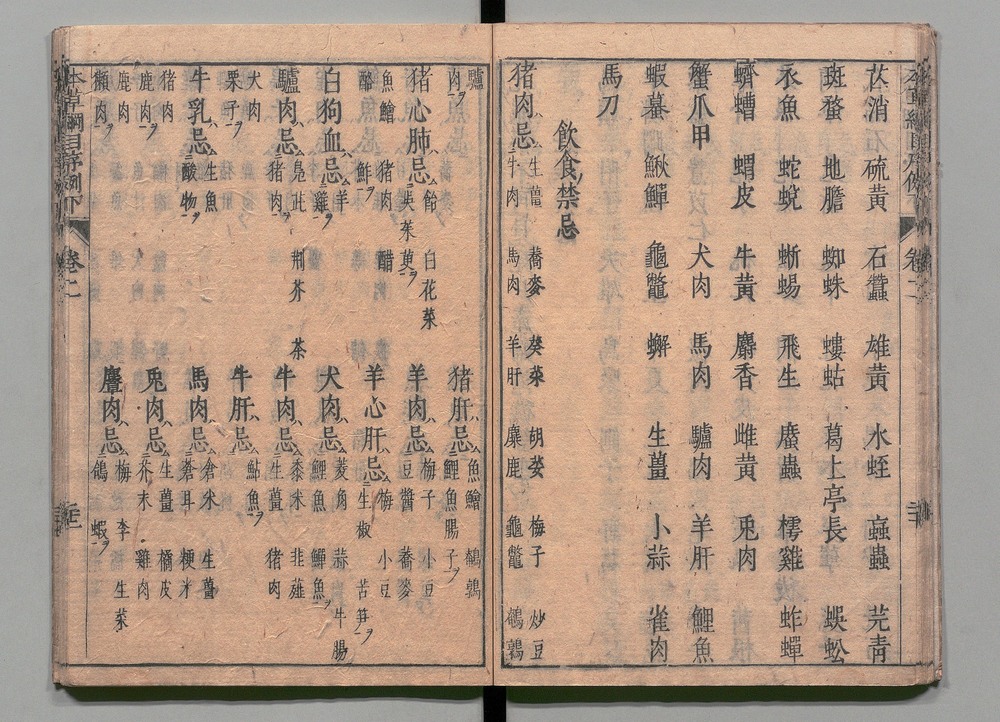 芒消 硫黄 石蠶 雄黄 水蛭 蝱蟲 芫青
斑蝥 地膽 蜘蛛 螻蛄 葛上亭長 蜈蚣
衣魚 蛇蛻 蜥蜴 飛生 䗪蟲 樗雞 蚱蟬
蠐螬 蝟皮 牛黄 麝香 雌黄 兎肉
蟹爪甲 犬肉 馬肉 驢肉 羊肝 鯉魚
蝦蟇 鰍鱓 龜鼈 蠏 生薑 小蒜 雀肉
馬刀
飲食禁忌
猪肉忌 生薑 蕎麥 葵菜 胡荽 梅子 炒豆
牛肉 馬肉 羊肝 麋鹿 龜鼈 鵪鶉
驢肉ヲ 猪肝忌 魚鱠 鵪鶉
鯉魚腸子ヲ
猪心肺忌 飴 白花菜
呉茱萸ヲ 羊肉忌 梅子 小豆
豆醬 蕎麥
魚鱠 猪肉 醋
酪 鮓ヲ 羊心肝忌 梅 小豆
生椒 苦笋ヲ
白狗血忌 羊
雞ヲ 犬肉忌 菱角 蒜 牛腸
鯉魚 鱓魚ヲ
驢肉忌 鳧茈 荆芥 茶
猪肉ヲ 牛肉忌 黍米 韭薤
生薑 猪肉
犬肉
栗子ヲ 牛肝忌 鮎魚ヲ
牛乳忌 生魚
酸物ヲ 馬肉忌 倉米 生薑
蒼耳 粳米
猪肉
鹿肉ヲ 兎肉忌 生薑 橘皮
芥末 雞肉
鹿肉
獺肉ヲ 麞肉忌 梅 李 生菜
鴿 蝦ヲ
本草綱目序例下 卷二